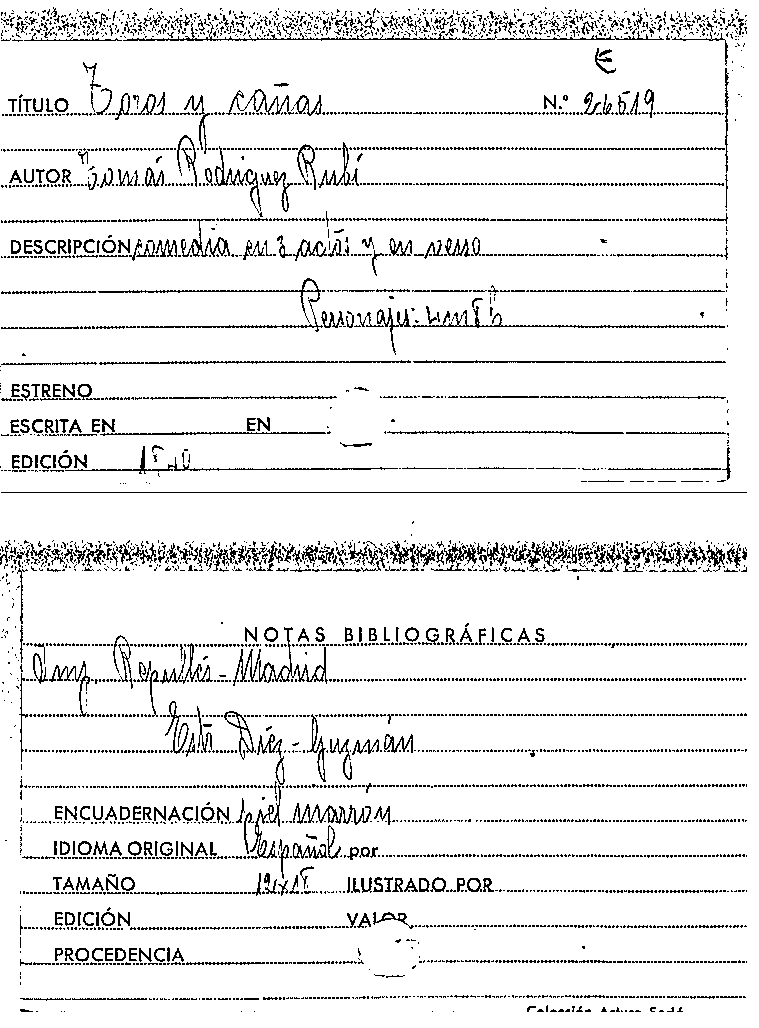 €
TÍTULO Toros y cañas N.º 26519
AUTOR Tomás Rodriguez Rubí
DESCRIPCIÓN comedia en 3 actos y en verso
Personajes: 4m 8h
ESTRENO
ESCRITA EN EN
EDICIÓN 1840
NOTAS BIBLIOGRÁFICAS
Imp. Repullés - Madrid
Díez - Guzmán
ENCUADERNACIÓN piel marrón
IDIOMA ORIGINAL Español por
TAMAÑO 12x18 ILUSTRADO POR
EDICIÓN VALOR
PROCEDENCIA
Colección Arturo Sedó